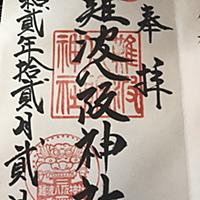 奉拝
難波八阪神社
難波
神社
拾貳年拾貳月貳
難波八阪神社